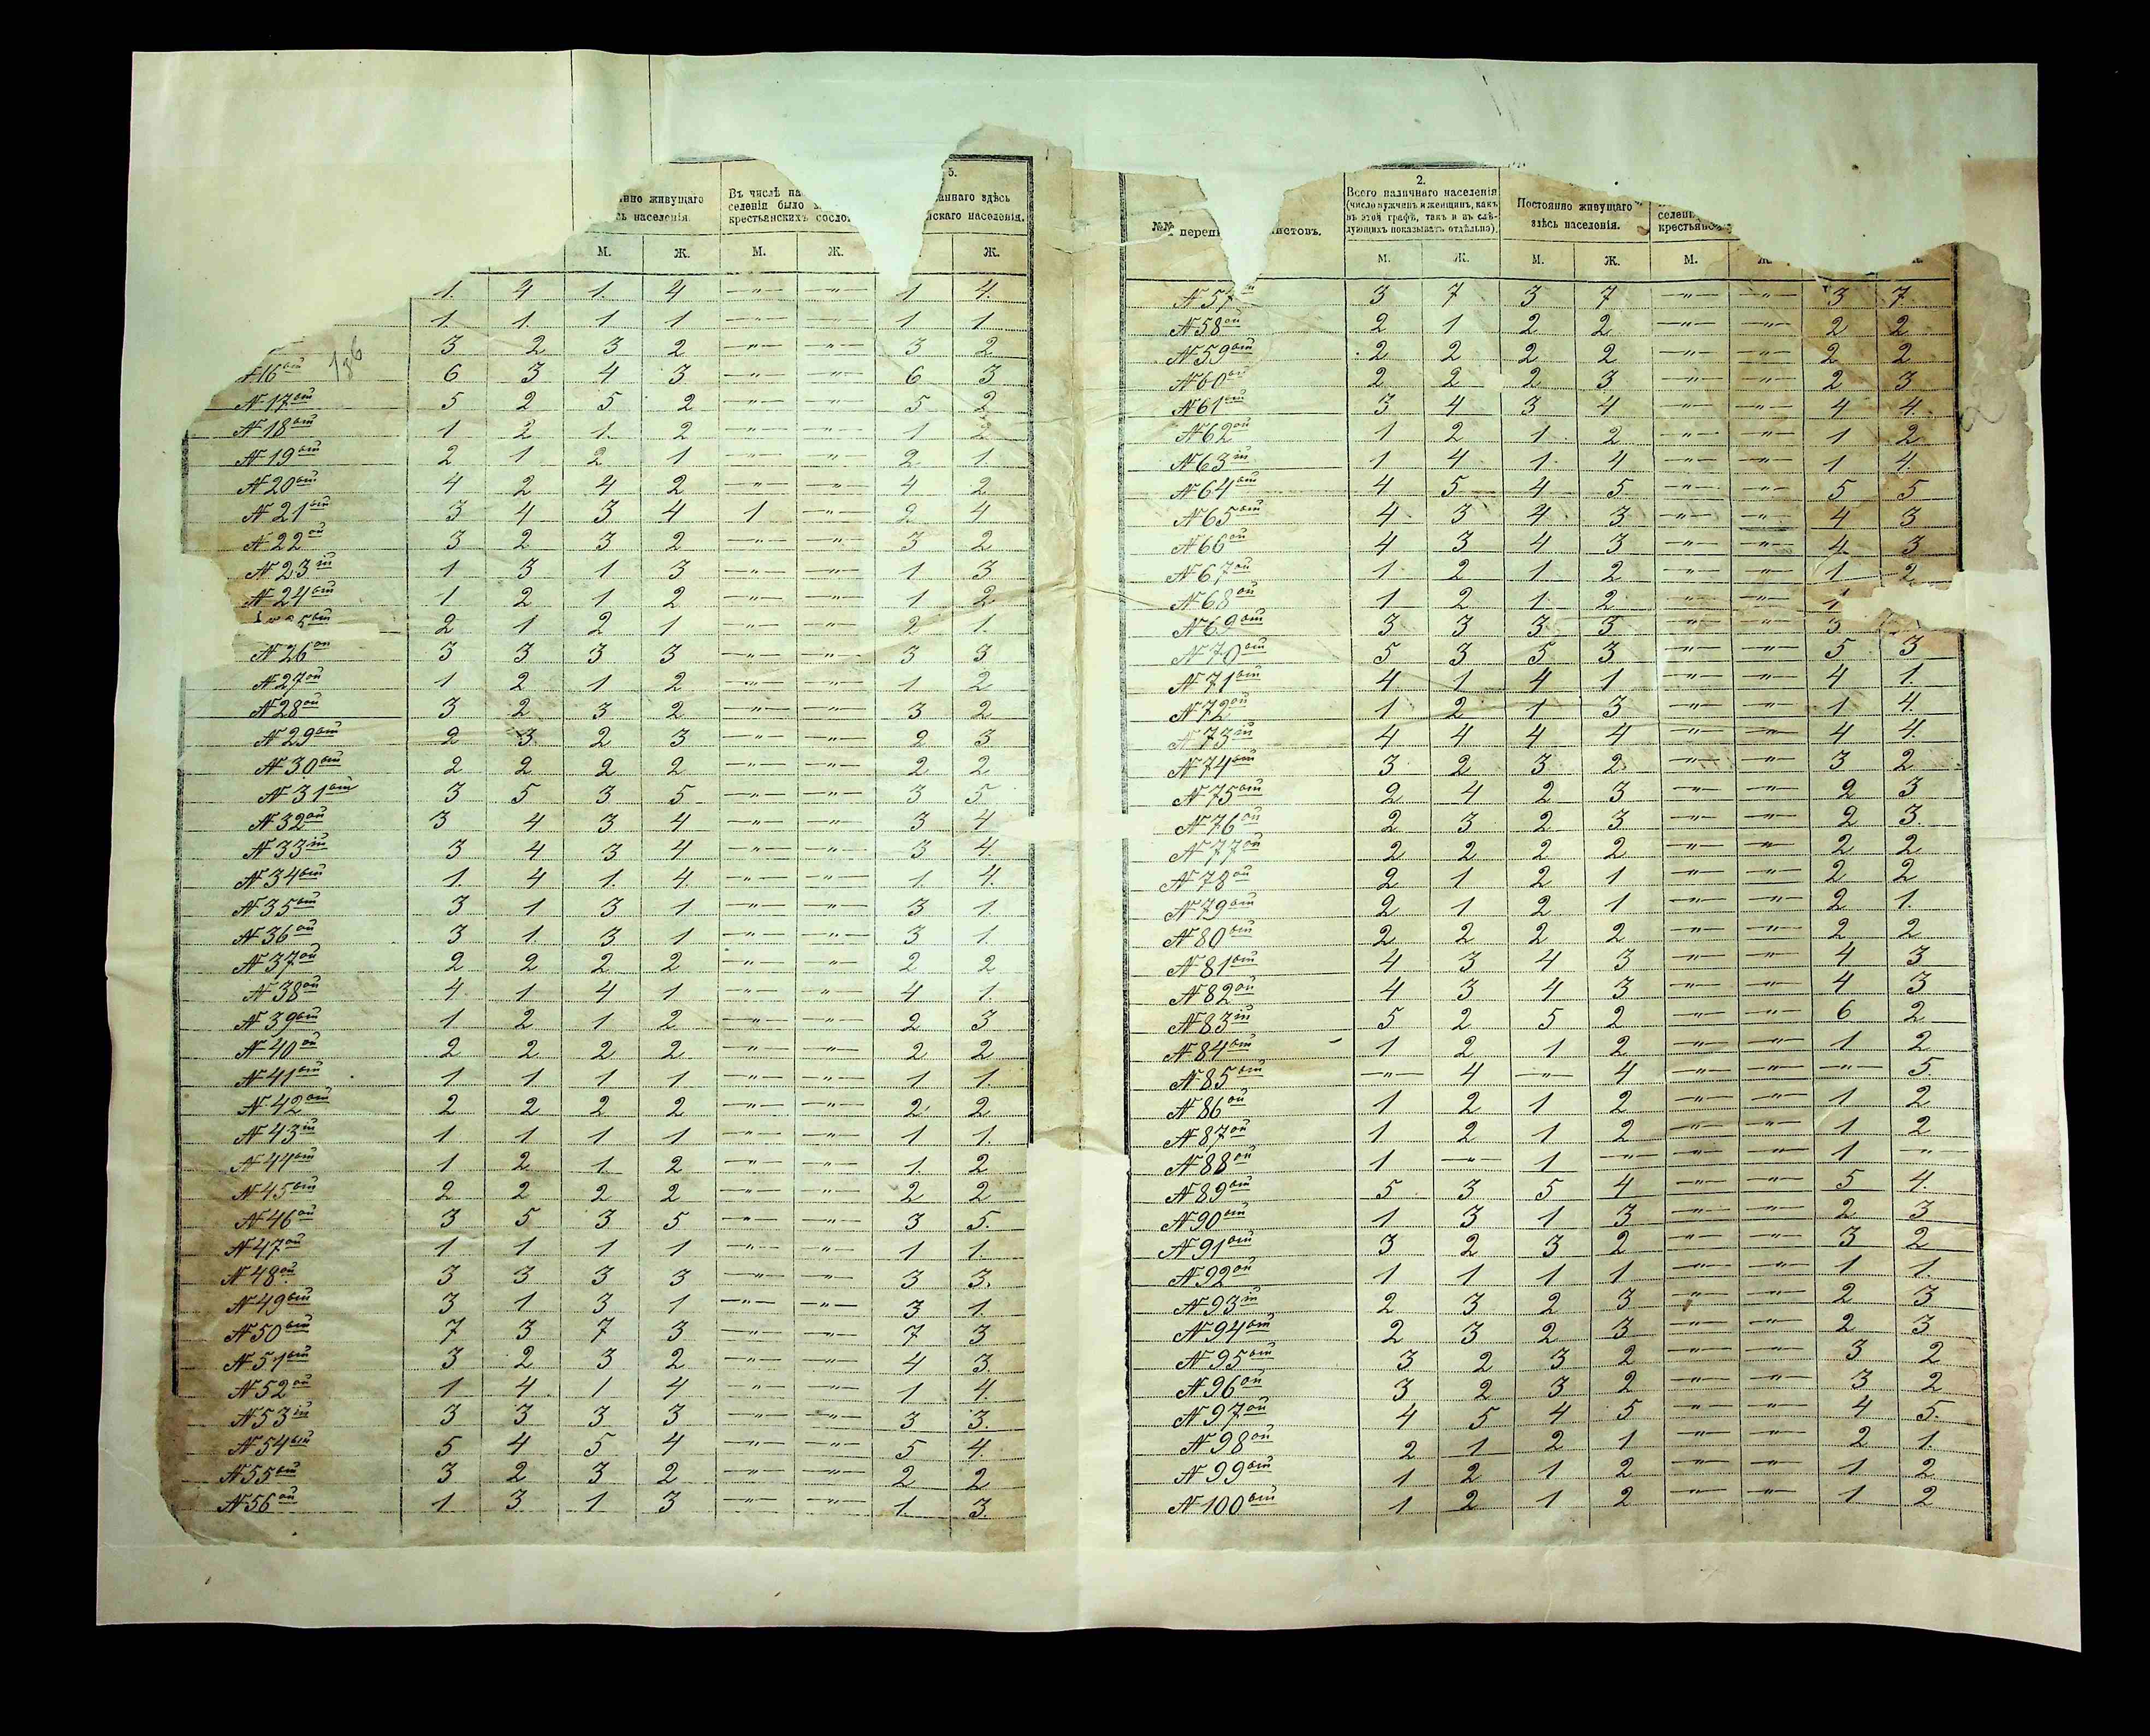 нно живущаго
сь населенія.
Въ числѣ на
селеніи было
крестьянскихъ сосло
5.
аннаго здѣсь
йскаго населенія.
М. Ж. М. Ж. Ж.
1. 4 1. 4 —"— —"— 1 4.
1. 1. 1 1 —"— —"— 1 1
3 2 3 2 —"— —"— 3 2
136
№16ый 6 3 4 3 —"— —"— 6 3
№17ый 5 2 5 2 —"— —"— 5 2
№18ый 1 2 1. 2 —"— —"— 1 2
№19ый 2 1 2 1 —"— —"— 2 1.
№20ый 4 2 4 2 —"— —"— 4 2
№21ый 3 4 3 4 1 —"— 2 4
№22ой 3 2 3 2 —"— —"— 3 2
№23ій 1 3 1 3 —"— —"— 1 3
№24ый 1 2 1 2 —"— —"— 1 2
5ый 2 1 2 1 —"— —"— 2 1.
№26ой 3 3 3 3 —"— —"— 3 3
№27ой 1 2 1 2 —"— —"— 1 2
№28ой 3 2 3 2 —"— —"— 3 2
№29ый 2 3 2 3 —"— —"— 2 3
№30ый 2 2 2 2 —"— —"— 2 2
№31ый 3 5 3 5 —"— —"— 3 5.
№32ой 3 4 3 4 —"— —"— 3 4
№33ій 3 4 3 4 —"— —"— 3 4.
№34ый 1. 4 1. 4. —"— —"— 1. 4.
№35ый 3 1 3 1 —"— —"— 3 1.
№36ой 3 1. 3 1 —"— —"— 3 1.
№37ой 2 2 2 2 —"— —"— 2 2
№38ой 4 1 4 1 —"— —"— 4 1.
№39ый 1 2 1 2 —"— —"— 2 3
№40ой 2 2 2 2 —"— —"— 2 2
№41ый 1 1 1 1 —"— —"— 1 1.
№42ой 2 2 2 2 —"— —"— 2 2
№43ій 1 1 1 1 —"— —"— 1 1.
№44ый 1 2 1 2 —"— —"— 1. 2
№45ый 2 2 2 2 —"— —"— 2 2
№46ой 3 5 3 5 —"— —"— 3 5.
№47ой 1 1 1 1 —"— —"— 1 1.
№48ой 3 3 3 3 —"— —"— 3 3.
№49ый 3 1 3 1 —"— —"— 3 1.
№50ый 7 3 7 3 —"— —"— 7 3
№51ый 3 2 3 2 —"— —"— 4 3
№52ой 1 4 1 4 —"— —"— 1 4.
№53ій 3 3 3 3 —"— —"— 3 3.
№54ый 5 4 5 4 —"— —"— 5 4.
№55ый 3 2 3 2 —"— —"— 2 2
№56ой 1 3 1 3 —"— —"— 1. 3.
№№ переп истовъ.
2.
Всего наличнаго населенія
(число мужчинъ и женщинъ, какъ
въ этой графѣ, такъ и въ слѣ-
дующихъ показывать отдѣльно).
Постоянно живущаго
здѣсь населенія.
селені
крестьянс
М. Ж. М. Ж. М. Ж.
№57 3 7 3 7 —"— —"— 3 7.
№58ой 2 1 2 2 —"— —"— 2 2
№59ый 2 2 2 2 —"— —"— 2 2
№60ый 2 2 2 3 —"— —"— 2 3
№61ый 3 4 3 4 —"— —"— 4 4.
№62ой 1 2 1. 2 —"— —"— 1 2
№63ій 1 4 1. 4 —"— —"— 1 4.
№64ый 4 5 4 5 —"— —"— 5 5
№65ый 4 3 4 3 —"— —"— 4 3
№66ой 4 3 4 3 —"— —"— 4 3
№67ой 1. 2 1 2 —"— —"— 1 2
№68ой 1 2 1 2 —"— —"— 1
№69ый 3 3 3 3 —"— —"— 3
№70ый 5 3 5 3 —"— —"— 5 3
№71ый 4 1 4 1 —"— —"— 4 1.
№72ой 1 2 1 3 —"— —"— 1 4.
№73ій 4 4 4 4 —"— —"— 4 4.
№74ый 3 2 3 2 —"— —"— 3 2
№75ый 2 4 2 3 —"— —"— 2 3
№76ой 2 3 2 3 —"— —"— 2 3.
№77ой 2 2 2 2 —"— —"— 2 2
№78ой 2 1 2 1 —"— —"— 2 2
№79ый 2 1 2 1 —"— —"— 2 1.
№80ый 2 2 2 2 —"— —"— 2 2
№81ый 4 3 4 3 —"— —"— 4 3
№82ой 4 3 4 3 —"— —"— 4 3
№83ій 5 2 5 2 —"— —"— 6 2
№84ый 1 2 1 2 —"— —"— 1 2
№85ый —"— 4 —"— 4 —"— —"— —"— 5.
№86ой 1 2 1 2 —"— —"— 1 2
№87ой 1 2 1 2 —"— —"— 1 2
№88ой 1 —"— 1 —"— —"— —"— 1 —"—
№89ый 5 3 5 4 —"— —"— 5 4.
№90ый 1 3 1 3 —"— —"— 2 3
№91ый 3 2 3 2 —"— —"— 3 2
№92ой 1 1 1 1 —"— —"— 1 1.
№93ій 2 3 2 3 —"— —"— 2 3
№94ый 2 3 2 3 —"— —"— 2 3
№95ый 3 2 3 2 —"— —"— 3 2
№96ой 3 2 3 2 —"— —"— 3 2
№97ой 4 5 4 5 —"— —"— 4 5.
№98ой 2 1 2 1 —"— —"— 2 1.
№99ый 1 2 1 2 —"— —"— 1 2
№100ый 1 2 1 2 —"— —"— 1 2